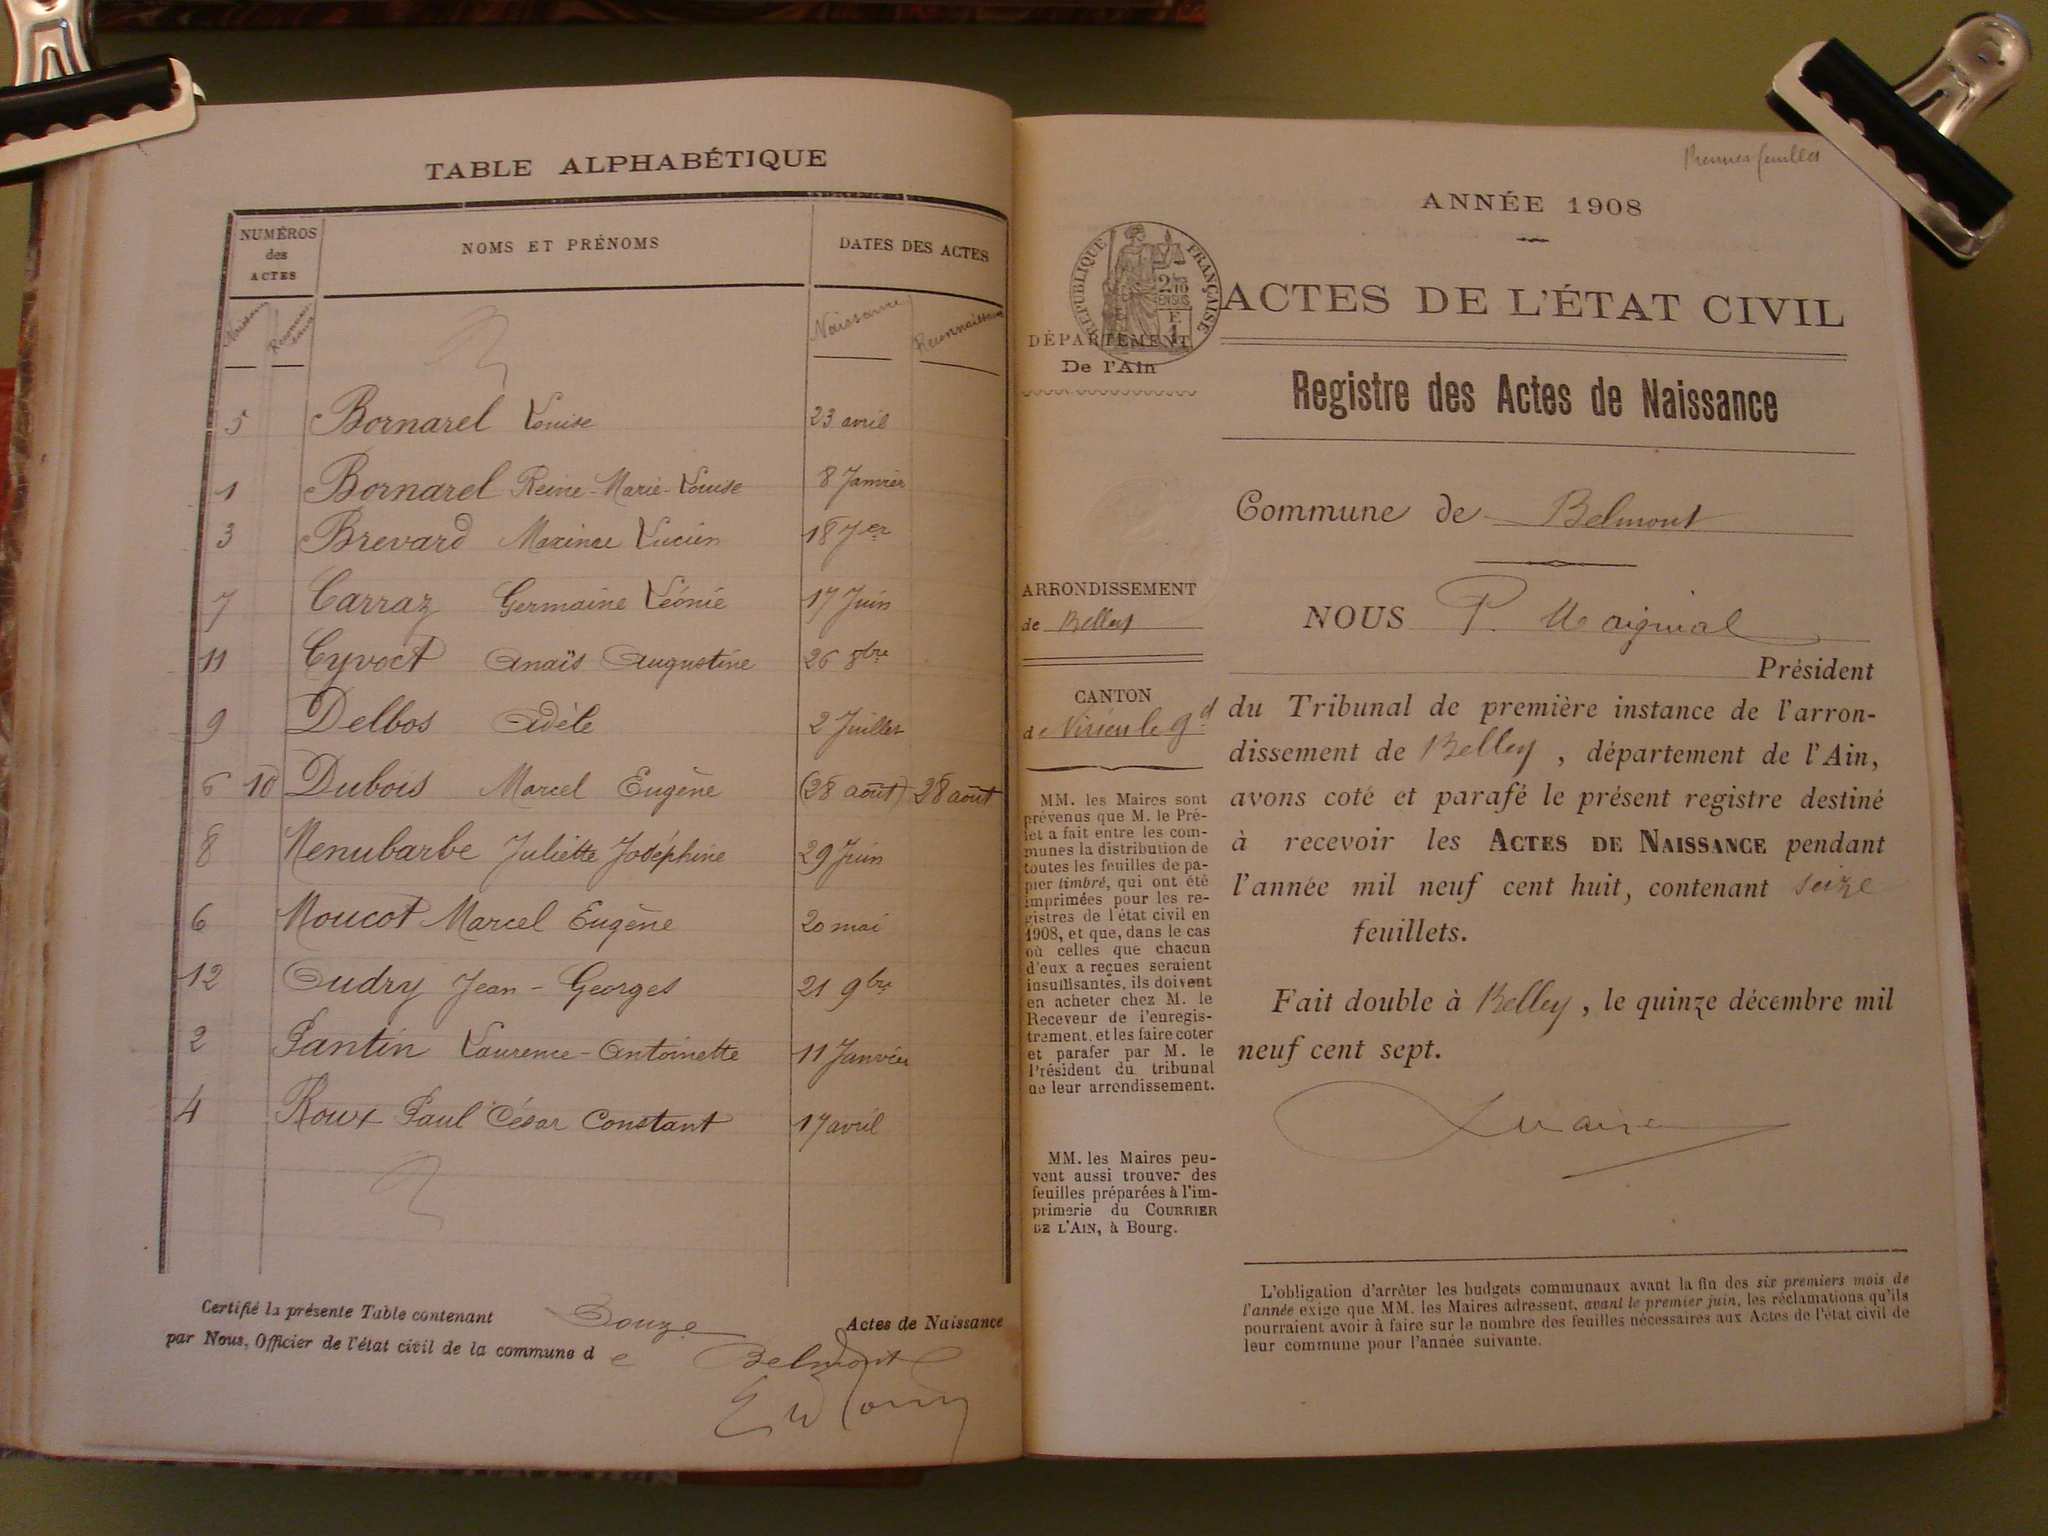 TABLE ALPHABÉTIQUE
NUMÉROS des ACTES
NOMS ET PRÉNOMS
DATES DES ACTES
Naissance
Naissance Reconnaissance
5 Bornarel Louise 23 avril
1 Bornarel Reine-Marie-Louise 8 Janvier
3 Brevard Maxime Lucien 18 Jer
7 Carraz Germaine Léonie 17 Juin
11 Cyvoct Anaïs Augustine 26 8bre
9 Delbos Adèle 2 Juillet
6 10 Dubois Marcel Eugène (28 août) 28 août
8 Menubarbe Juliette Joséphine 29 Juin
6 Moucot Marcel Eugène 20 mai
12 Oudry Jean-Georges 21 9bre
2 Pantin Laurence-Antoinette 11 Janvier
4 Roux Paul César Constant 17 avril
Certifié la présente Table contenant Douze Actes de Naissance
par Nous, Officier de l'état civil de la commune de Belmont
feuilles
ANNÉE 1908
RÉPUBLIQUE FRANÇAISE
2/10 EN SUS
ACTES DE L'ÉTAT CIVIL
DÉPARTEMENT
De l'Ain
Registre des Actes de Naissance
Commune de Belmont
ARRONDISSEMENT
de Belley
CANTON
de Virieu le Gd
MM. les Maires sont
prévenus que M. le Pré-
fet a fait entre les com-
munes la distribution de
toutes les feuilles de pa-
pier timbré, qui ont été
imprimées pour les re-
gistres de l'état civil en
1908, et que, dans le cas
où celles que chacun
d'eux a reçues seraient
insuffisantes, ils doivent
en acheter chez M. le
Receveur de l'enregis-
trement, et les faire coter
et parafer par M. le
Président du tribunal
de leur arrondissement.
MM. les Maires peu-
vent aussi trouver des
feuilles préparées à l'im-
primerie du COURRIER
DE L'AIN, à Bourg.
NOUS P.
Président
du Tribunal de première instance de l'arron-
dissement de Belley, département de l'Ain,
avons coté et parafé le présent registre destiné
à recevoir les ACTES DE NAISSANCE pendant
l'année mil neuf cent huit, contenant seize
feuillets.
Fait double à Belley, le quinze décembre mil
neuf cent sept.
L'obligation d'arrêter les budgets communaux avant la fin des six premiers mois de
l'année exige que MM. les Maires adressent, avant le premier juin, les réclamations qu'ils
pourraient avoir à faire sur le nombre des feuilles nécessaires aux Actes de l'état civil de
leur commune pour l'année suivante.